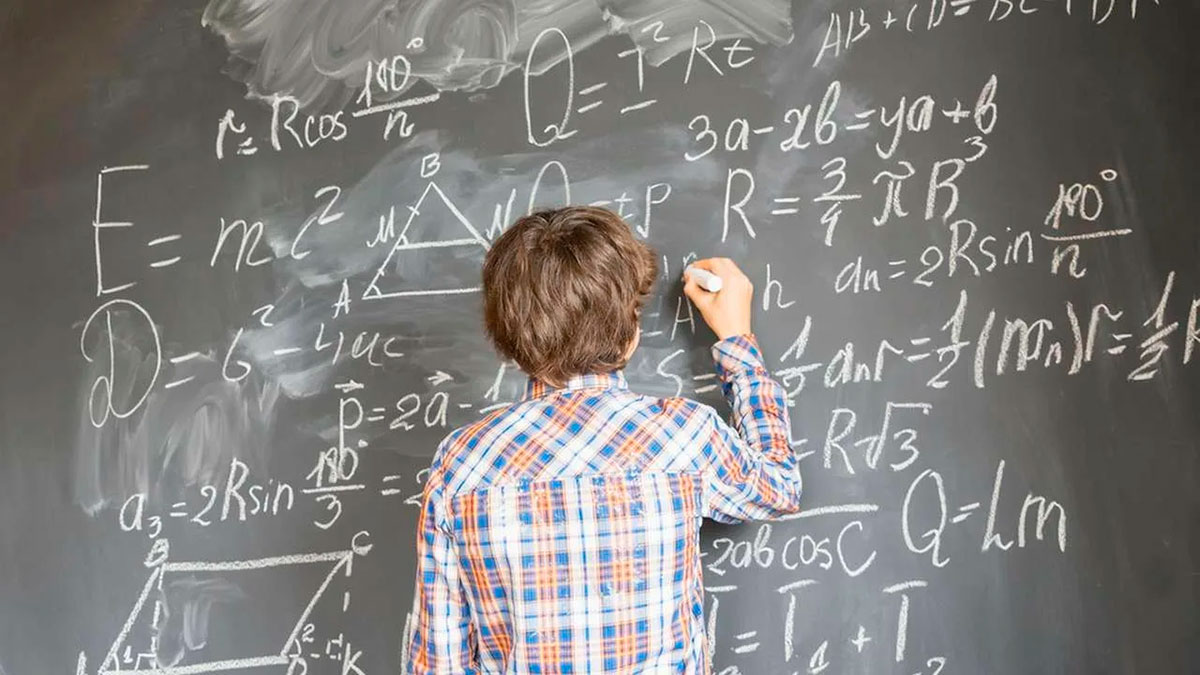 AB + CD = BC +
r = Rcos 180°/n
Q = I² Rt
3a - 2b = ya + b
E = mc²
B
M N
A
Q = tp
R = 3/4 π B³
an = 2Rsin 180°/n
h
D = b² - 4ac
S = 1/2 anr = 1/2 (mn)r = 1/2
p = 2a - 1
= R√3
a3 = 2Rsin 180°/3 = 2
Q = Lm
-2ab cosC
B C
1 2
D K
T = T1 + T2